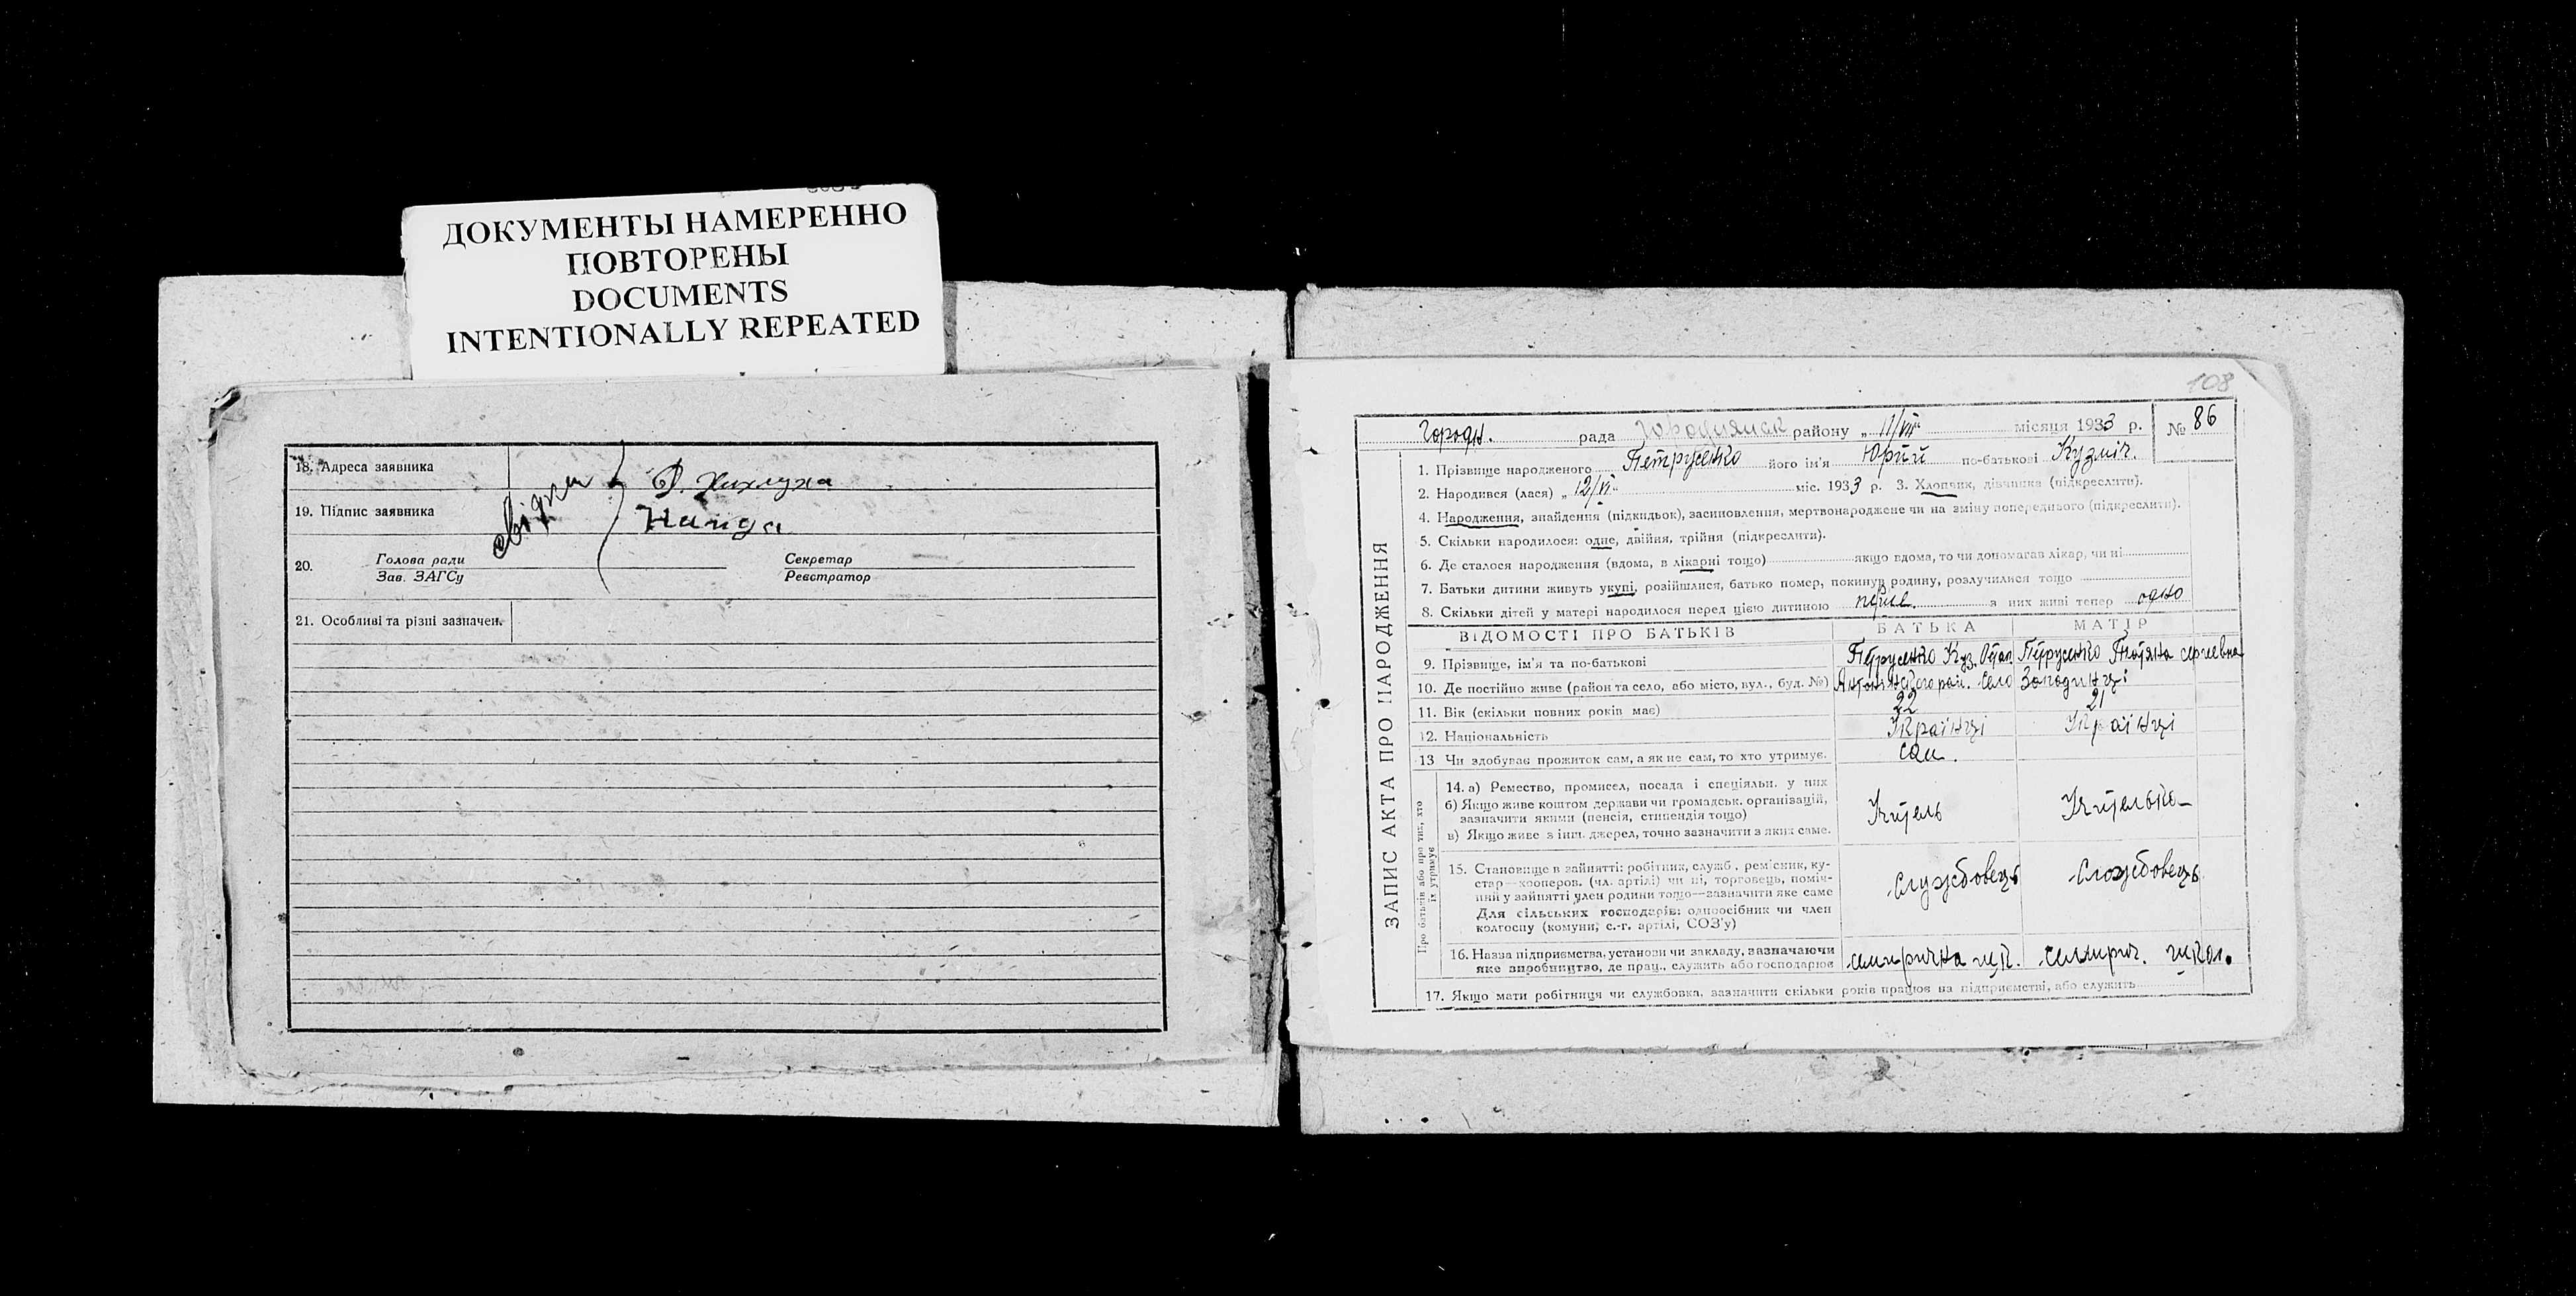 ДОКУМЕНТЫ НАМЕРЕННО
ПОВТОРЕНЫ
DOCUMENTS
INTENTIONALLY REPEATED
18. Адреса заявника
Д. Хихлуха
19. Підпис заявника
свідки
Нанда
20. Голова ради
Зав. ЗАГСу
Секретар
Реєстратор
21. Особливі та різні зазначен.
108
Городн. рада Городнянск району „ 11/VII місяця 1933 р. № 86
ЗАПИС АКТА ПРО НАРОДЖЕННЯ
1. Прізвище народженого Петрусенко його ім'я Юрий по-батькові Кузміч.
2. Народився (лася) „ 12/VI „ міс. 1933 р. 3. Хлопчик, дівчинка (підкреслити).
4. Народження, знайдення (підкидьок), засиновлення, мертвонароджене чи на зміну попереднього (підкреслити).
5. Скільки народилося: одне, двійня, трійня (підкреслити).
6. Де сталося народження (вдома, в лікарні тощо) якщо вдома, то чи допомагав лікар, чи ні
7. Батьки дитини живуть укупі, розійшлися, батько помер, покинув родину, розлучилися тощо
8. Скільки дітей у матері народилося перед цією дитиною перше. з них живі тепер одно
ВІДОМОСТІ ПРО БАТЬКІВ БАТЬКА МАТІР
9. Прізвище, ім'я та по-батькові Петрусенко Куз. Петрусенко
10. Де постійно живе (район та село, або місто, вул., буд. №) рай. Село Западинці
11. Вік (скільки повних років має) 22 21
12. Національність Українці Українці
13 Чи здобуває прожиток сам, а як не сам, то хто утримує. сам.
Про батьків або про тих, хто
їх утримує
14. а) Ремество, промисел, посада і спеціяльн. у них
б) Якщо живе коштом держави чи громадськ. організацій,
зазначити якими (пенсія, стипендія тощо)
в) Якщо живе з інш. джерел, точно зазначити з яких саме.
Учитель Учителька
15. Становище в зайнятті: робітник, служб., ремісник, ку-
стар—кооперов. (чл. артілі) чи ні, торговець, поміч-
ний у зайнятті член родини тощо—зазначити яке саме
Для сільських господарів: одноосібник чи член
колгоспу (комуни, с.-г. артілі, СОЗ'у)
Службовець Службовець
16. Назва підприємства, установи чи закладу, зазначаючи
яке виробництво, де прац., служить або господарює
семирична шк. семирич. школ.
17. Якщо мати робітниця чи службовка, зазначити скільки років працює на підприємстві, або служить